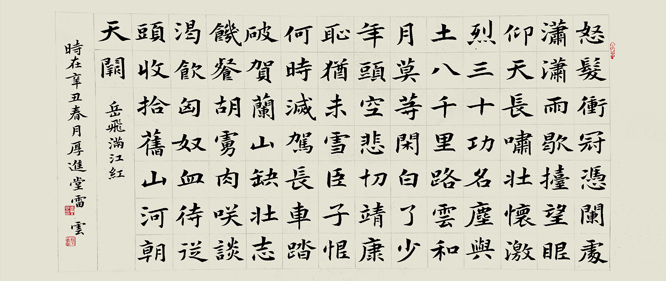 怒髮衝冠憑闌處
瀟瀟雨歇擡望眼
仰天長嘯壯懷激
烈三十功名塵與
土八千里路雲和
月莫等閑白了少
年頭空悲切靖康
恥猶未雪臣子恨
何時滅駕長車踏
破賀蘭山缺壯志
饑餐胡虜肉咲談
渴飲匈奴血待從
頭收拾舊山河朝
天闕
岳飛滿江紅
時在辛丑春月厚進堂雷雲